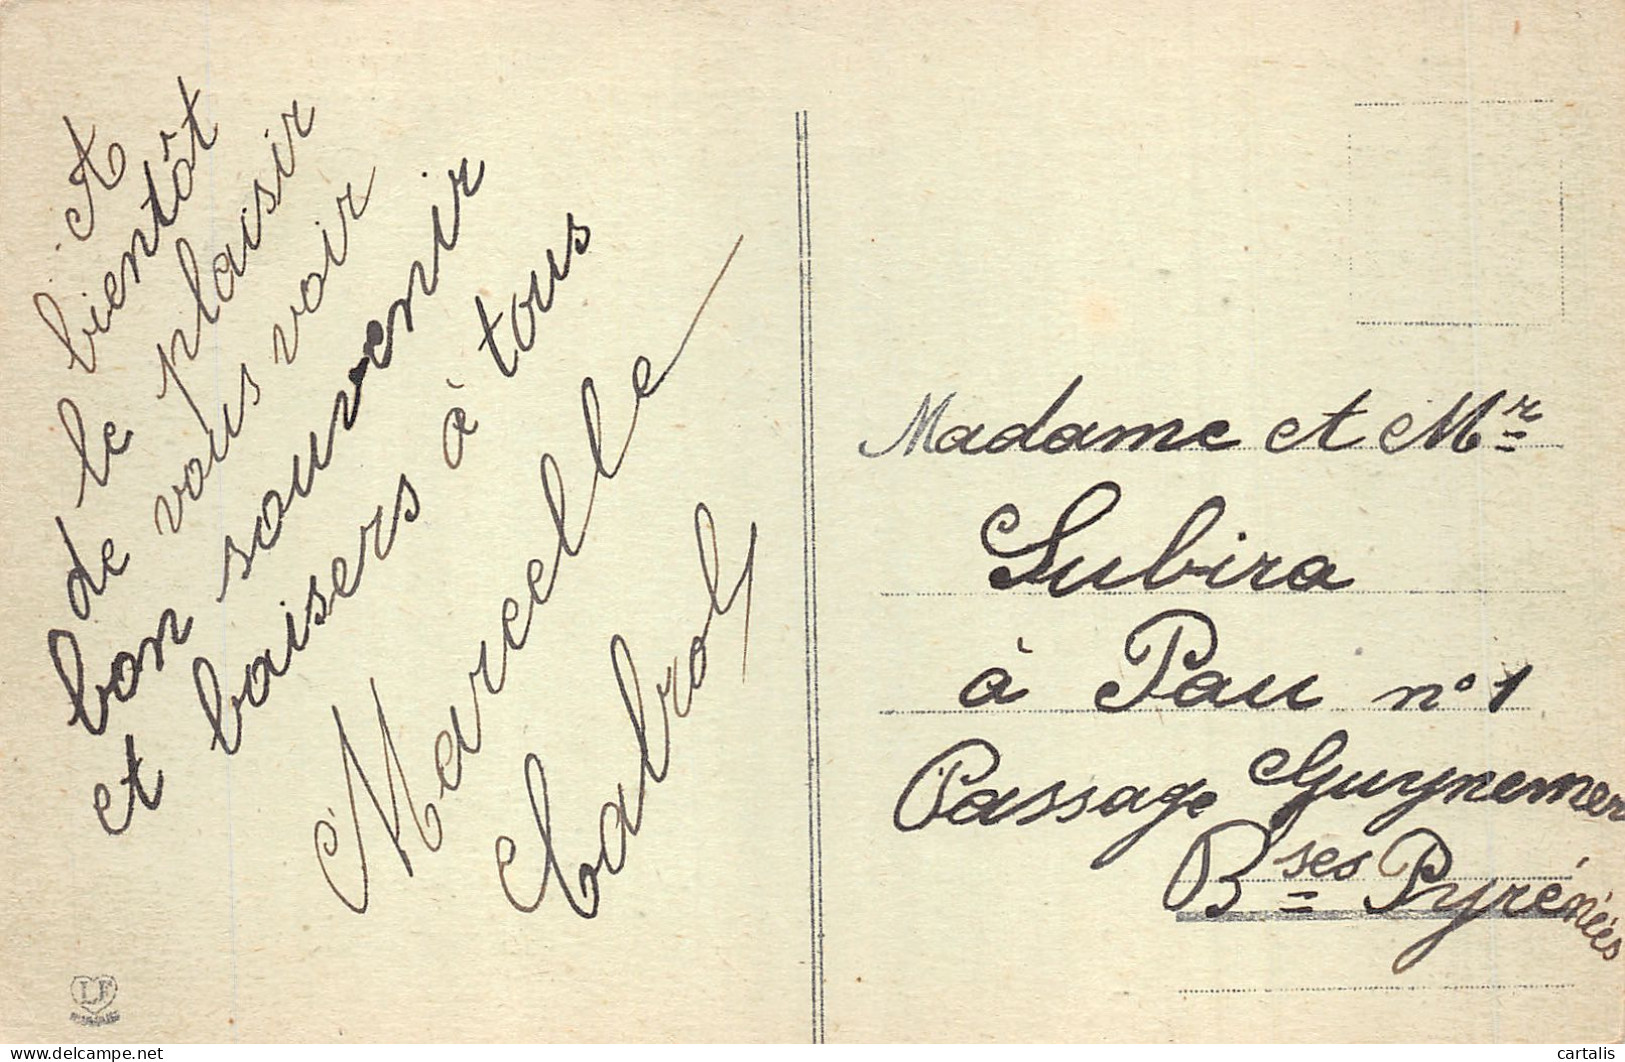 A
bientôt
le plaisir
de vous voir
bon souvenir
et baisers à tous
Marcelle
Cabrol
Madame et Mr
Subira
à Pau n° 1
Passage Guynemer
Bses Pyrénées
LF
delcampe.net
cartalis